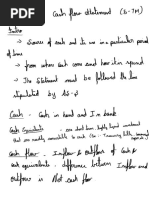 Cash flow Statement (LS-7M)
Intro
→ Sources of cash and its use in a particular period
of time
→ from where cash come and how it is spend
→ The Statement must be followed the law
stipulated by AS-3
Cash :- Cash in hand and In bank
Cash Equivalents :- are short term, highly liquid investment
that are readily convertable to cash (Ex:- Treasury bills,
Cash flow :- Inflow & outflow of cash &
cash equivalents : difference between Inflow and
outflow is Net cash flow